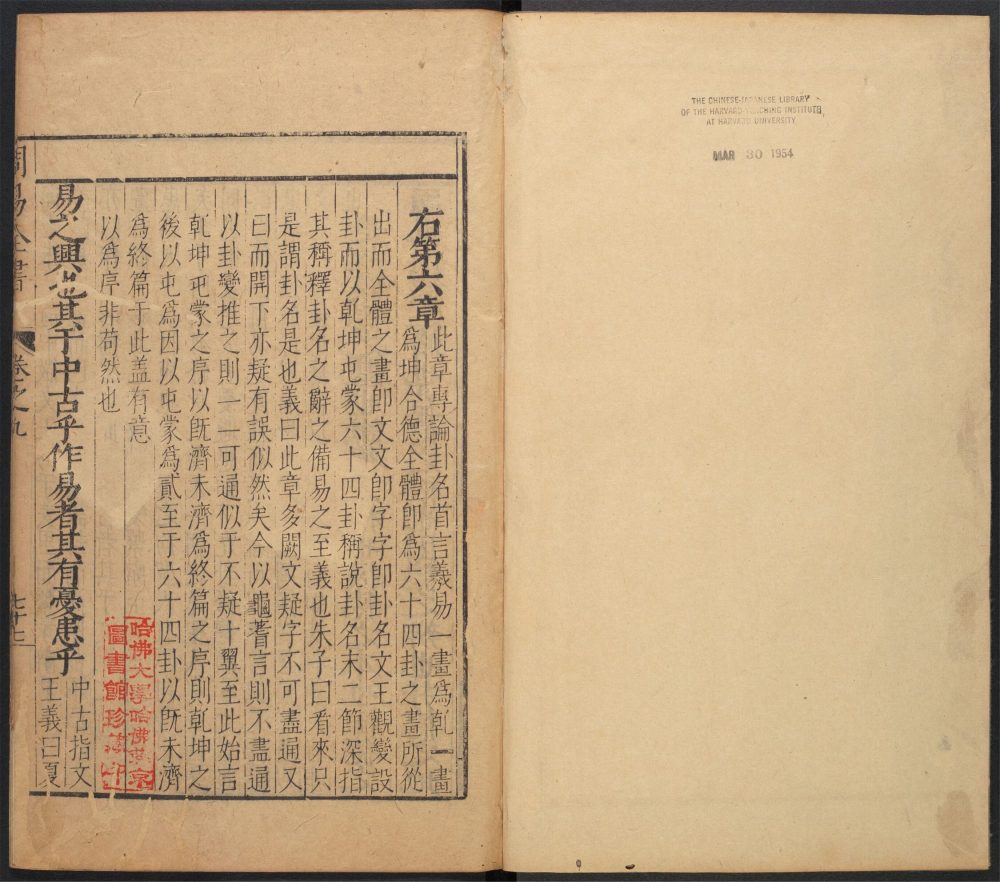 THE CHINESE-JAPANESE LIBRARY
OF THE HARVARD-YENCHING INSTITUTE
AT HARVARD UNIVERSITY
MAR 30 1954
右第六章
此章專論卦名首言羲易一畫爲乾一畫
爲坤合德全體卽爲六十四卦之畫所從
出而全體之畫卽文文卽字字卽卦名文王觀變設
卦而以乾坤屯蒙六十四卦稱說卦名末二節深指
其稱釋卦名之辭之備易之至義也朱子曰看來只
是謂卦名是也義曰此章多闕文疑字不可盡通又
曰而開下亦疑有誤似然矣今以龜蓍言則不盡通
以卦變推之則一一可通似于不疑十翼至此始言
乾坤屯蒙之序以旣濟未濟爲終篇之序則乾坤之
後以屯爲因以屯蒙爲貳至于六十四卦以旣未濟
爲終篇于此盖有意
以爲序非苟然也
易之興也其于中古乎作易者其有憂患乎
中古指文
王義曰夏
周易全書
卷之九
七十七
哈佛大學哈佛燕京
圖書館珍藏印